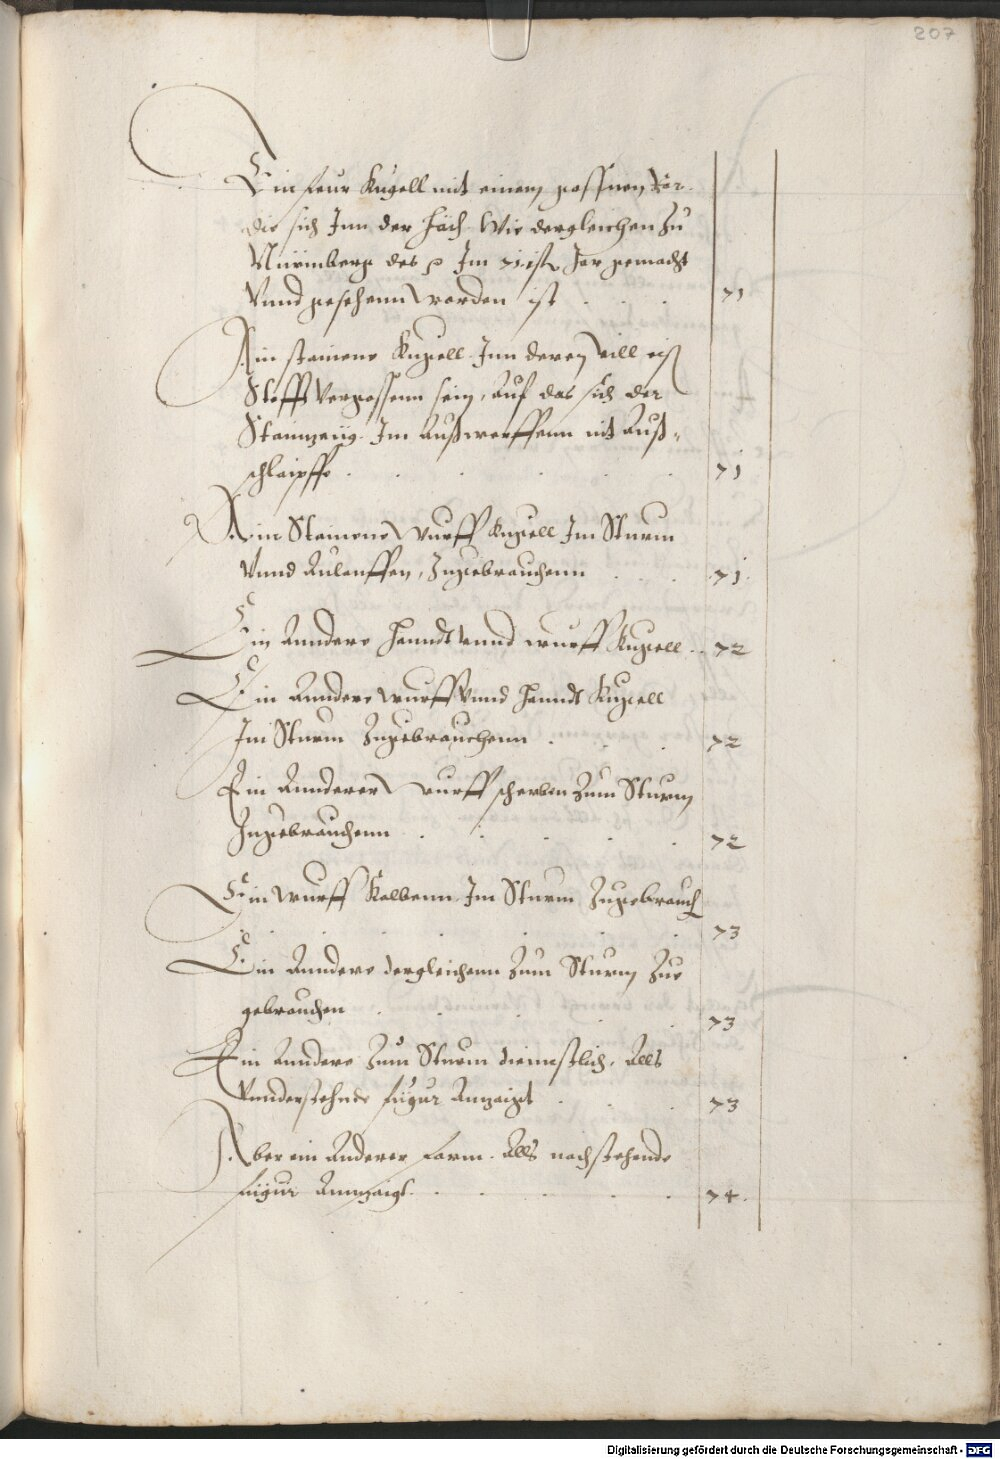 207
Ein Feur Kugell mit einem gossnen Ror
die sich Inn der hach. Wie dergleichen zu
Nurmberg des Im 71. ist Jar gemacht
Vnnd gesehenn worden ist . . . 71
Ain stainene Kugell. Inn deren vill eiß
Stoff vergossenn sein, Auf das sich der
Stainzeüg. Im Außwerffenn nit Auß-
schlaipffe . . . . 71
Ain Stainene wurff Kugell Im Sturm
Vnnd Anlauffen, Zugebrauchenn . . . 71.
Ein Anndere Hanndt vnnd wurff Kugell . . 72
Ein Anndere wurff vnnd Hanndt Kugell
Im Sturm Zugebrauchenn . . . 72
Ein Annderer wurff scherben Zum Sturm
Zugebrauchenn . . . . 72
Ein wurff Kolbenn. Im Sturm Zugebrauch
. . . . 73
Ein Anndere dergleichenn Zum Sturm Zue
gebrauchen . . . . 73
Ein Anndere Zum Sturm dienstlich. Alls
Vnnderstehnde figur Anzaigt . . . 73
Aber ein Anderer form. Alls nachstehende
figur Annzaigt . . . . 74.
Digitalisierung gefördert durch die Deutsche Forschungsgemeinschaft - DFG